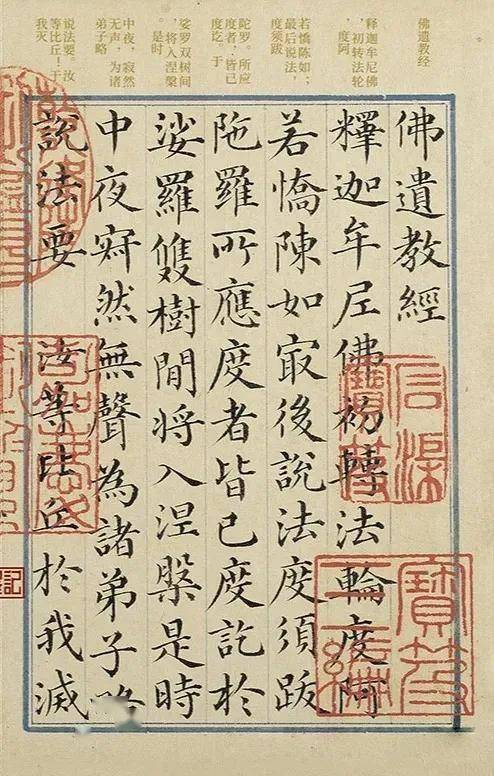 佛遗教经
释迦牟尼佛
，初转法轮
，度阿
若憍陈如；
最后说法，
度须跋
陀罗。所应
度者，皆已
度讫。于
娑罗双树间
，将入涅槃
。是时
中夜，寂然
无声，为诸
弟子略
说法要。汝
等比丘！于
我灭
佛遺教經
釋迦牟尼佛初轉法輪度阿
若憍陳如㝡後說法度須跋
陁羅所應度者皆已度訖於
娑羅雙樹間將入涅槃是時
中夜寂然無聲為諸弟子略
說法要 汝等比丘於我滅
寶笈
三編
記